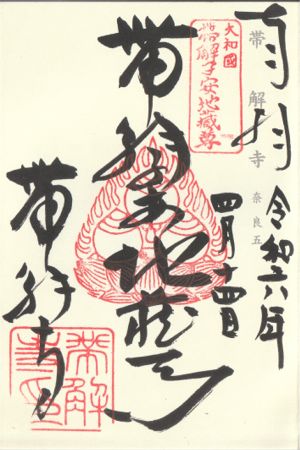 奉拝
帯解寺
奈良五
令和六年
四月十四日
大和國
帯解子安地蔵尊
帯解子安地蔵尊
帯解寺
帯解寺印